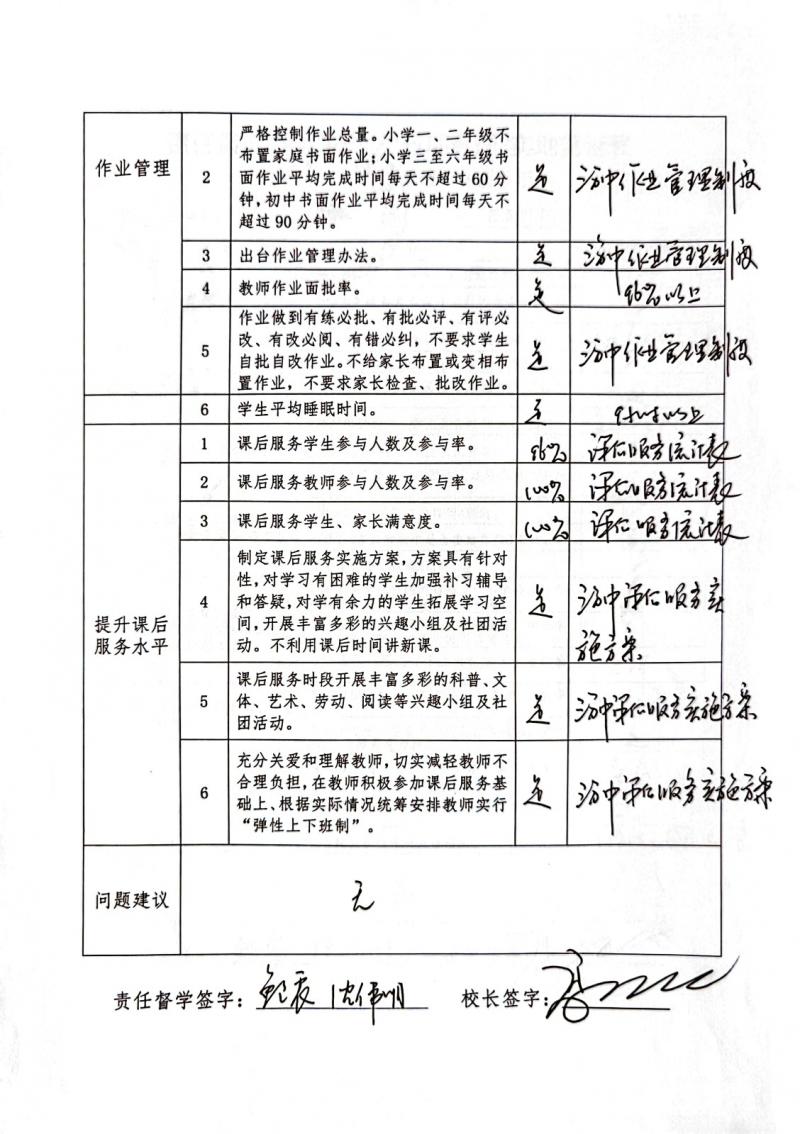 作业管理
2
严格控制作业总量。小学一、二年级不
布置家庭书面作业;小学三至六年级书
面作业平均完成时间每天不超过 60 分
钟,初中书面作业平均完成时间每天不
超过 90 分钟。
是
汾中作业管理制度
3
出台作业管理办法。
是
汾中作业管理制度
4
教师作业面批率。
是
96%以上
5
作业做到有练必批、有批必评、有评必
改、有改必阅、有错必纠,不要求学生
自批自改作业。不给家长布置或变相布
置作业,不要求家长检查、批改作业。
是
汾中作业管理制度
6
学生平均睡眠时间。
是
9小时以上
提升课后
服务水平
1
课后服务学生参与人数及参与率。
96%
课后服务统计表
2
课后服务教师参与人数及参与率。
100%
课后服务统计表
3
课后服务学生、家长满意度。
100%
课后服务统计表
4
制定课后服务实施方案,方案具有针对
性,对学习有困难的学生加强补习辅导
和答疑,对学有余力的学生拓展学习空
间,开展丰富多彩的兴趣小组及社团活
动。不利用课后时间讲新课。
是
汾中课后服务实
施方案
5
课后服务时段开展丰富多彩的科普、文
体、艺术、劳动、阅读等兴趣小组及社
团活动。
是
汾中课后服务实施方案
6
充分关爱和理解教师,切实减轻教师不
合理负担,在教师积极参加课后服务基
础上、根据实际情况统筹安排教师实行
“弹性上下班制”。
是
汾中课后服务实施方案
问题建议
无
责任督学签字: 沈伟明 校长签字: